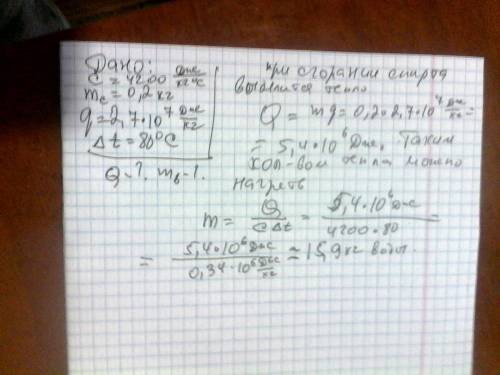 Дано:
c = 4200 Дж/кг·°C
mc = 0,2 кг
q = 2,7·10⁷ Дж/кг
Δt = 80°C
Q-?. mв-?.
При сгорании спирта
выделится тепло
Q = mq = 0,2·2,7·10⁷ Дж/кг =
= 5,4·10⁶ Дж. Таким
кол-вом тепла можно
нагреть
m = Q/cΔt = 5,4·10⁶ Дж/4200·80 =
= 5,4·10⁶ Дж/0,34·10⁶ Дж/кг ≈ 15,9 кг воды.